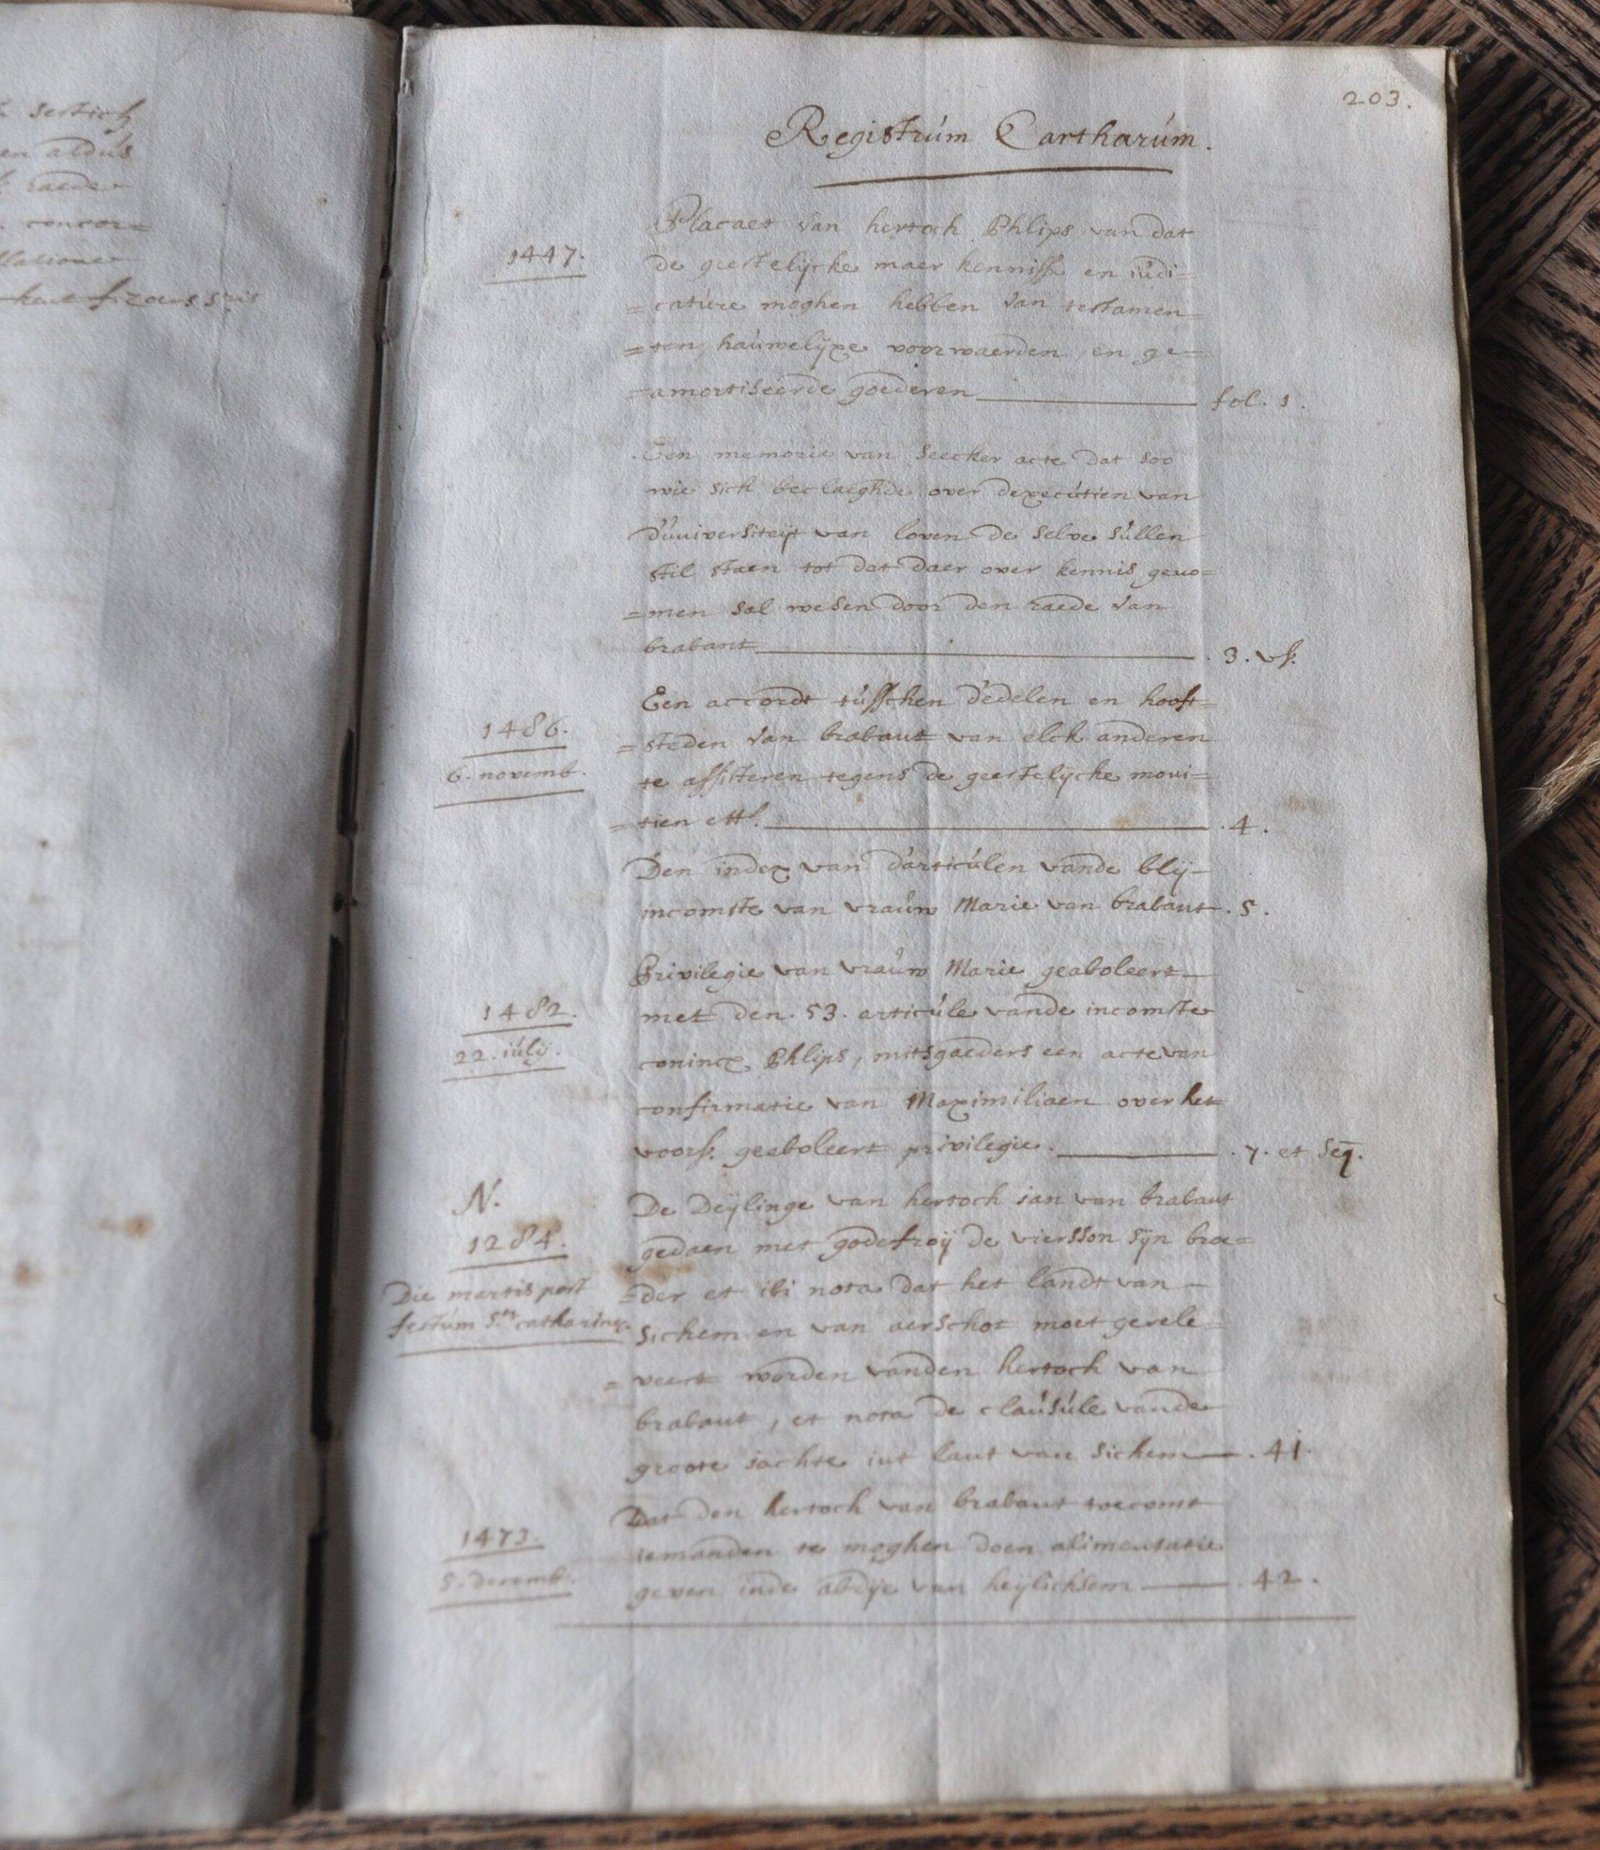 203.
Registrúm Cartharúm.
1447.
Placaet van hertoch Phlips van dat
de geestelijcke maer kennisse en iúdi=
=catúre moghen hebben van testamen=
=ten, haúwelijxe voorwaerden, en ge=
=amortiseerde goederen fol. 1.
Een memorie van seecker acte dat soo
wie sich beclaeghde over dexecútien van
d'úniversiteijt van loven de selve súllen
stil staen tot dat daer over kennis geno=
=men sal wesen door den raede van
brabant . 3. vs.
1486.
6. novemb.
Een accordt tússchen d'edelen en hooft=
=steden van brabant van elck anderen
te assisteren tegens de geestelijcke moni=
=tien ett. . 4.
Den index van d'articúlen vande blij-
incomste van vraúw Marie van brabant. 5.
1482.
22. iúlij.
Privilegie van vraúw Marie geaboleert
met den . 53. articúle vande incomste
coninck Phlips, mitsgaeders een acte van
confirmatie van Maximiliaen over het
voors. geaboleert privilegie. . 7. et seq.
N.
1284.
Die martis post
festúm Stæ catharinæ.
De deijlinge van hertoch ian van brabant
gedaen met godefroij de viersson sijn broe=
=der et ibi nota dat het landt van
sichem en van aerschot moet gerele=
=veert worden vanden hertoch van
brabant, et nota de claúsúle vande
groote iachte int lant van sichem . 41.
1473.
5. decemb.
Dat den hertoch van brabant toecomt
iemanden te moghen doen alimentatie
geven inde abdije van heijlichsem . 42.
sertich
en aldús
raede
concor=